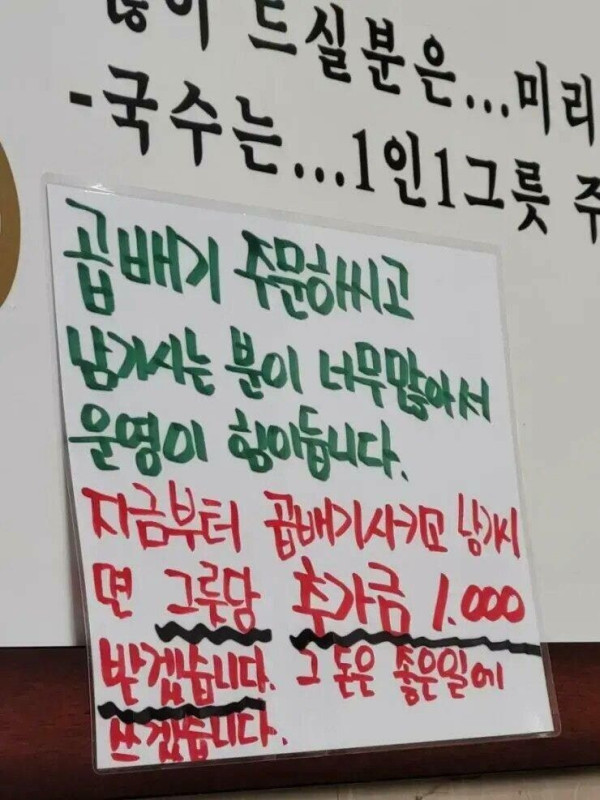 많이 드실분은...미리
-국수는...1인1그릇 주
곱배기 주문하시고
남기시는 분이 너무많아서
운영이 힘이듭니다.
지금부터 곱배기시키고 남기시
면 그릇당 추가금 1.000
받겠습니다. 그 돈은 좋은일에
쓰겠습니다.